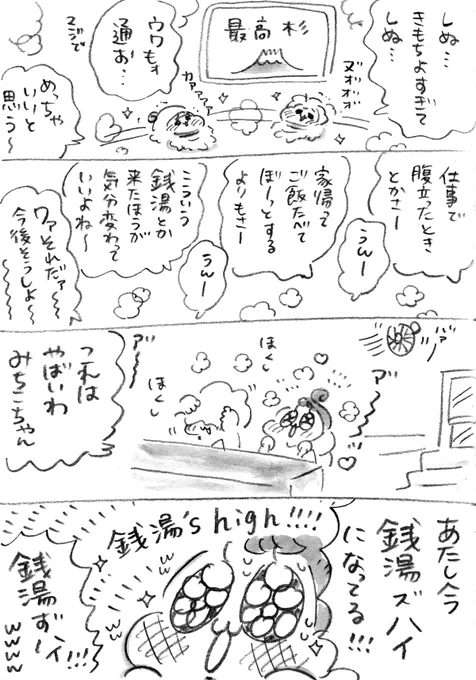 しぬ…
きもちよすぎて
しぬ…
最高杉
ヌオォォォ
カァァ〜〜
ウワもォ
通お…
マジで
めっちゃ
いいと
思う〜
仕事で
腹立ったとき
とかさー
うんー
家帰って
ご飯たべて
ぼーっとする
よりもさー
うんー
こういう
銭湯とか
来たほうが
気分変わって
いいよね〜
ワァそれだァ〜
今後そうしょ〜
ア〜
ほくし
ほくし
ア〜
これは
やばいわ
みちこちゃん
あたし今
銭湯ズハイ
になってる!!!
銭湯's high!!!!
銭湯ずハイ!!!
wwww